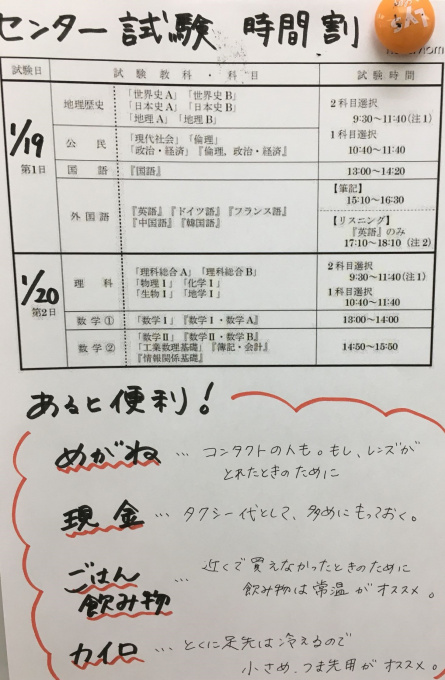 センター試験 時間割
試験日 試験教科・科目 試験時間
1/19
第1日
地理歴史
「世界史A」「世界史B」
「日本史A」「日本史B」
「地理A」「地理B」
2科目選択
9:30～11:40(注1)
公民
「現代社会」「倫理」
「政治・経済」『倫理,政治・経済』
1科目選択
10:40～11:40
国語 『国語』 13:00～14:20
外国語
『英語』『ドイツ語』『フランス語』
『中国語』『韓国語』
【筆記】
15:10～16:30
【リスニング】
『英語』のみ
17:10～18:10(注2)
1/20
第2日
理科
「理科総合A」「理科総合B」
「物理Ⅰ」「化学Ⅰ」
「生物Ⅰ」「地学Ⅰ」
2科目選択
9:30～11:40(注1)
1科目選択
10:40～11:40
数学① 「数学Ⅰ」『数学Ⅰ・数学A』 13:00～14:00
数学②
「数学Ⅱ」『数学Ⅱ・数学B』
「工業数理基礎」『簿記・会計』
『情報関係基礎』
14:50～15:50
あると便利!
めがね … コンタクトの人も。もし、レンズが
とれたときのために
現金 … タクシー代として、多めにもっておく。
ごはん
飲み物
… 近くで買えなかったときのために
飲み物は常温がオススメ。
カイロ … とくに足先は冷えるので
小さめ、つま先用がオススメ。